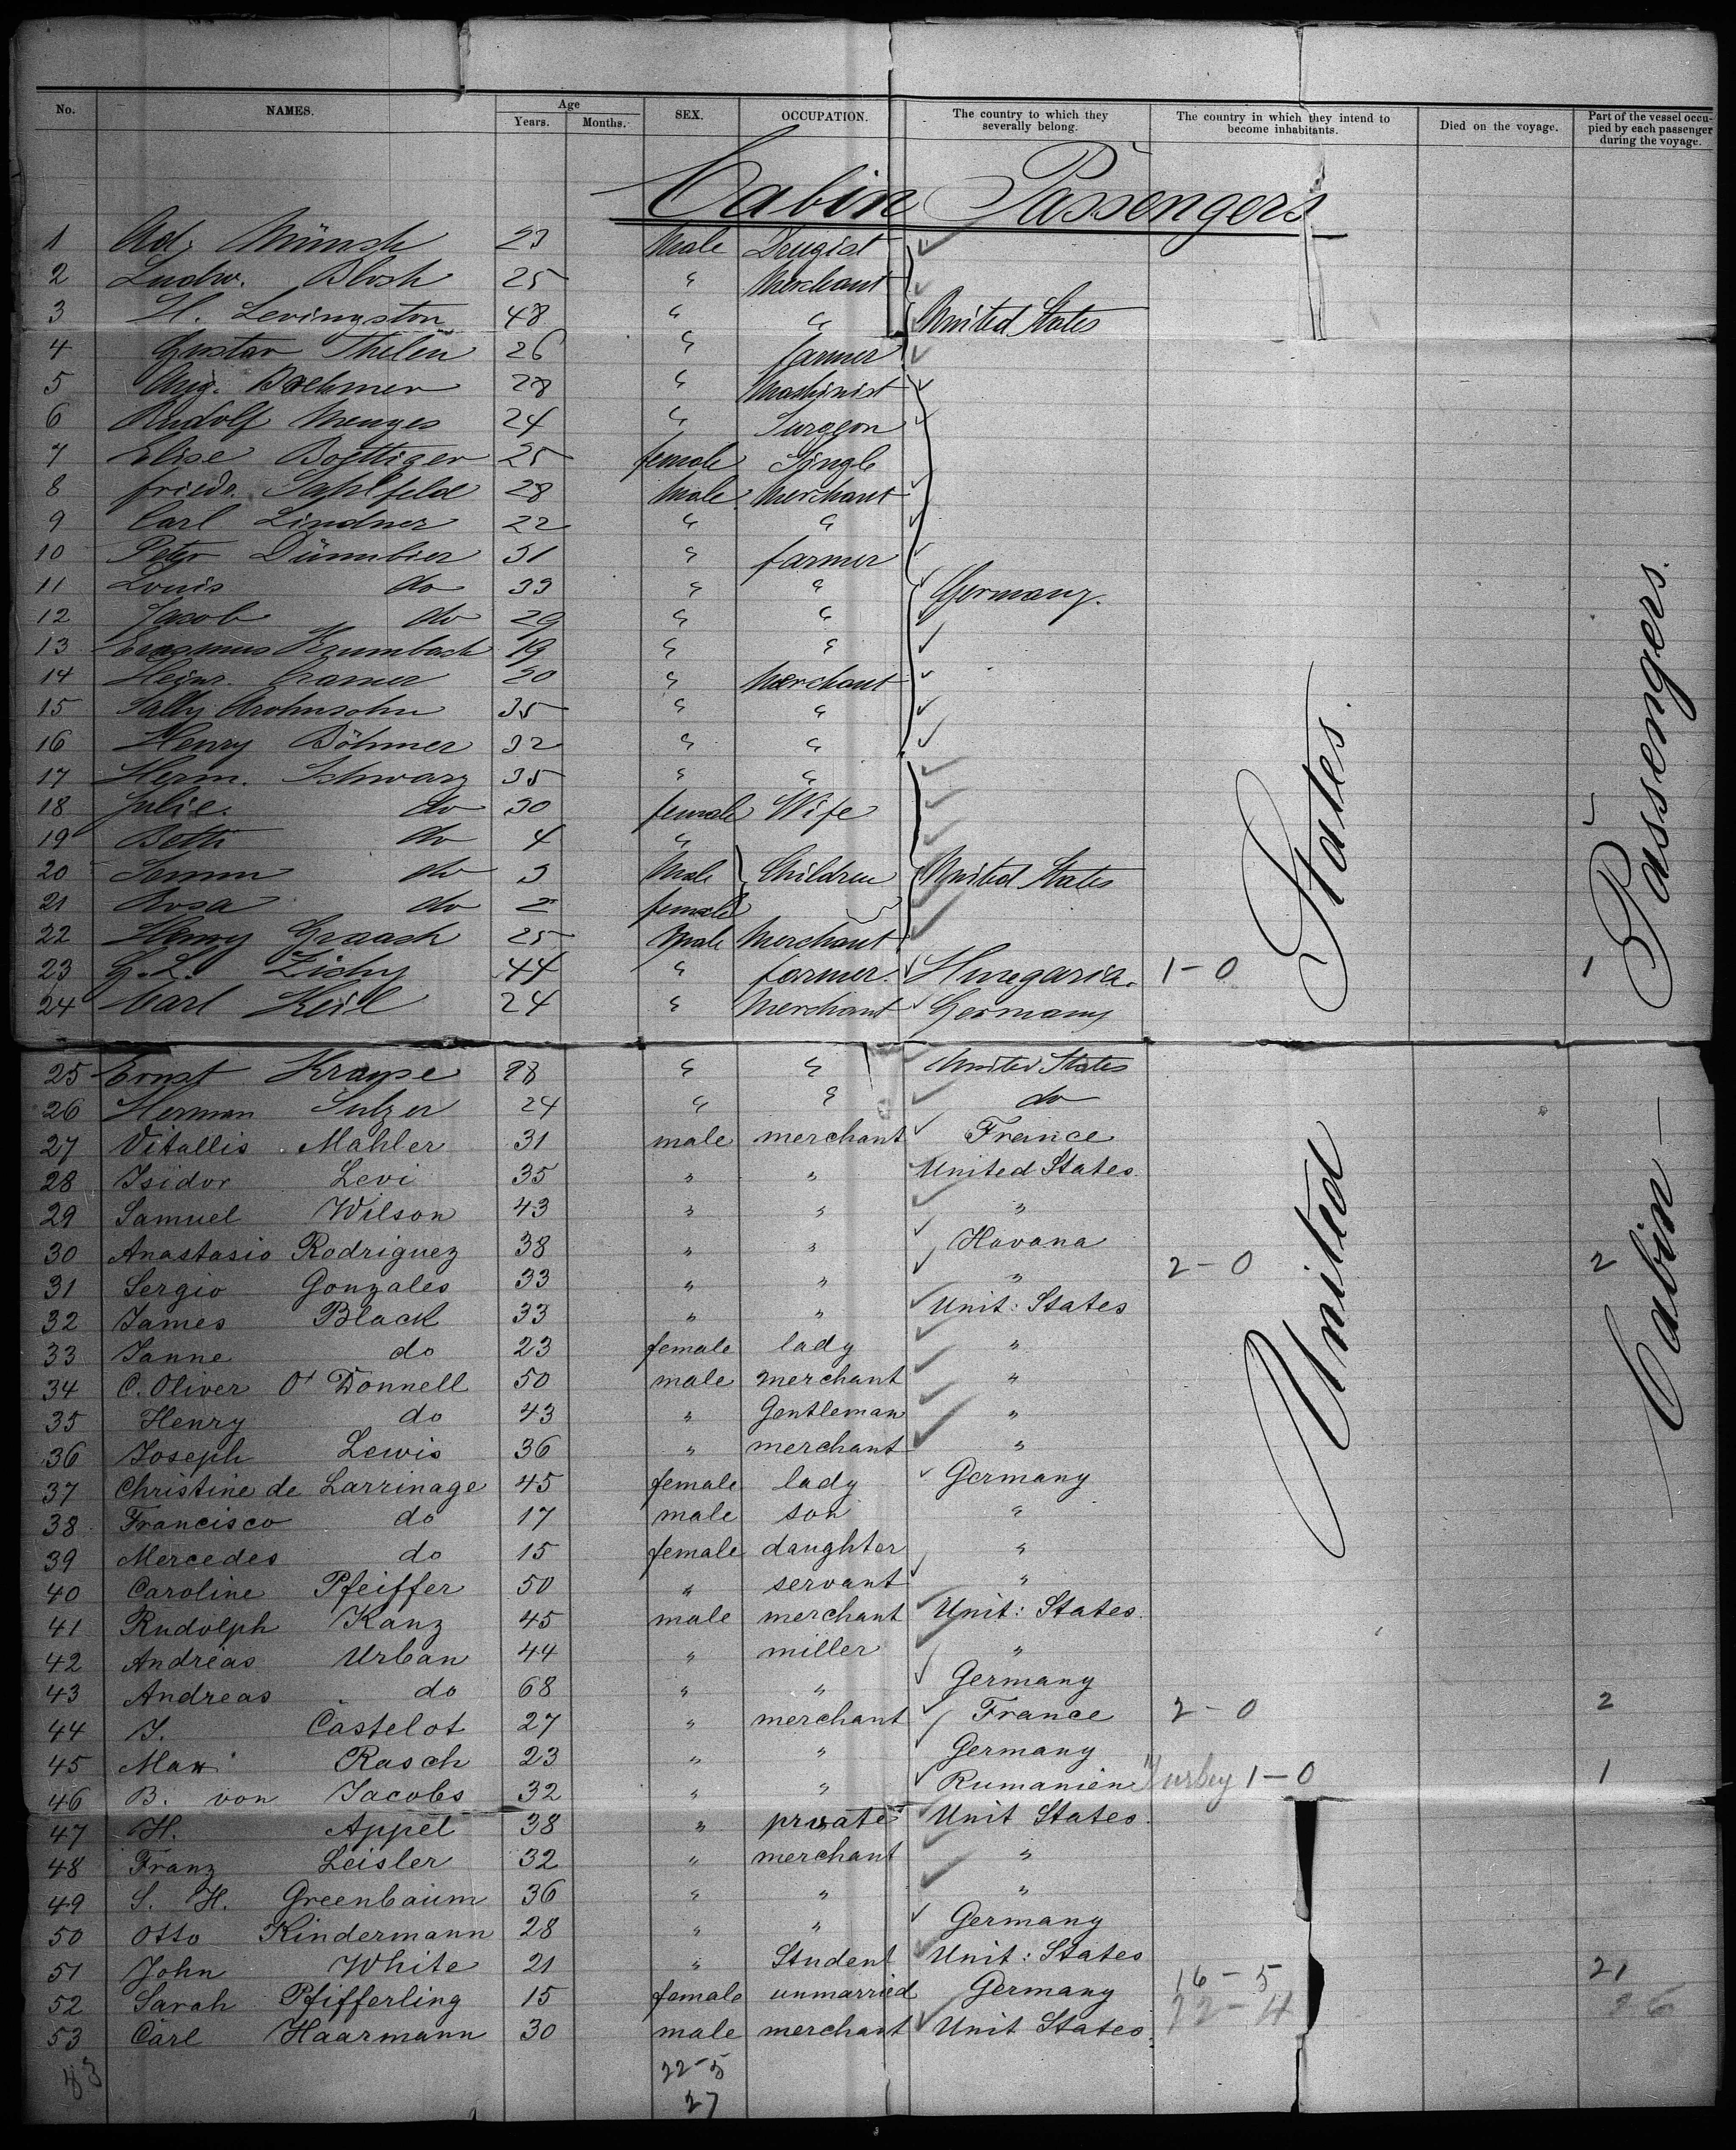 No. NAMES. Age Years. Months. SEX. OCCUPATION. The country to which they severally belong. The country in which they intend to become inhabitants. Died on the voyage. Part of the vessel occupied by each passenger during the voyage.
Cabin Passengers
1 Ad. Münch 23 Male Drugist
2 Ludw. Bloch 25 " Merchant
3 H. Levingston 48 " " United States
4 Gustav Thelen 26 " farmer
5 Aug. Boehmer 28 " Mashinist
6 Rudolf Menges 24 " Surgeon
7 Elise Boettiger 25 female Single
8 friedr. Sahlfeld 28 Male Merchant
9 Carl Lindner 22 " "
10 Peter Dünnbier 31 " farmer
11 Louis do 33 " " Germany.
12 Jacob do 29 " "
13 Erasmus Krumbach 19 " "
14 Heinr. Cramer 20 " Merchant
15 Sally Arohnsohn 35 " "
16 Henry Böhmer 32 " "
17 Herm. Schwarz 35 " "
18 Julie. do 30 female Wife
19 Betti do 4 "
20 do 3 Male Children United States
21 Rosa do 2 female
22 Henry Graash 25 Male Merchant
23 G. L. Zichy 44 " farmer. Hungaria. 1-0 1
24 Carl Keil 24 " Merchant Germany
25 Ernst Krause 28 " " United States
26 Herman Sulzer 24 " " do
27 Vitallis Mahler 31 male merchant France
28 Isidor Levi 35 " " United States.
29 Samuel Wilson 43 " " "
30 Anastasio Rodriguez 38 " " Havana
31 Sergio Gonzales 33 " " " 2-0 2
32 James Black 33 " " Unit: States
33 Janne do 23 female lady "
34 C. Oliver O'Donnell 50 male merchant "
35 Henry do 43 " Gentleman "
36 Joseph Lewis 36 " merchant "
37 Christine de Larrinage 45 female lady Germany
38 Francisco do 17 male son "
39 Mercedes do 15 female daughter "
40 Caroline Pfeiffer 50 " servant "
41 Rudolph Kanz 45 male merchant Unit: States.
42 Andreas Urban 44 " miller "
43 Andreas do 68 " " Germany
44 J. Castelot 27 " merchant France 2-0 2
45 Max Rasch 23 " " Germany
46 B. von Jacobs 32 " " Rumanien Turkey 1-0 1
47 H. Appel 38 " private Unit States.
48 Franz Leisler 32 " merchant "
49 S. H. Greenbaum 36 " " "
50 Otto Kindermann 28 " " Germany
51 John White 21 " Student Unit: States
52 Sarah Pfifferling 15 female unmarried Germany 16-5 21
53 Carl Haarmann 30 male merchant Unit States. 22-4 26
22-5
27
United States.
Cabin Passengers.